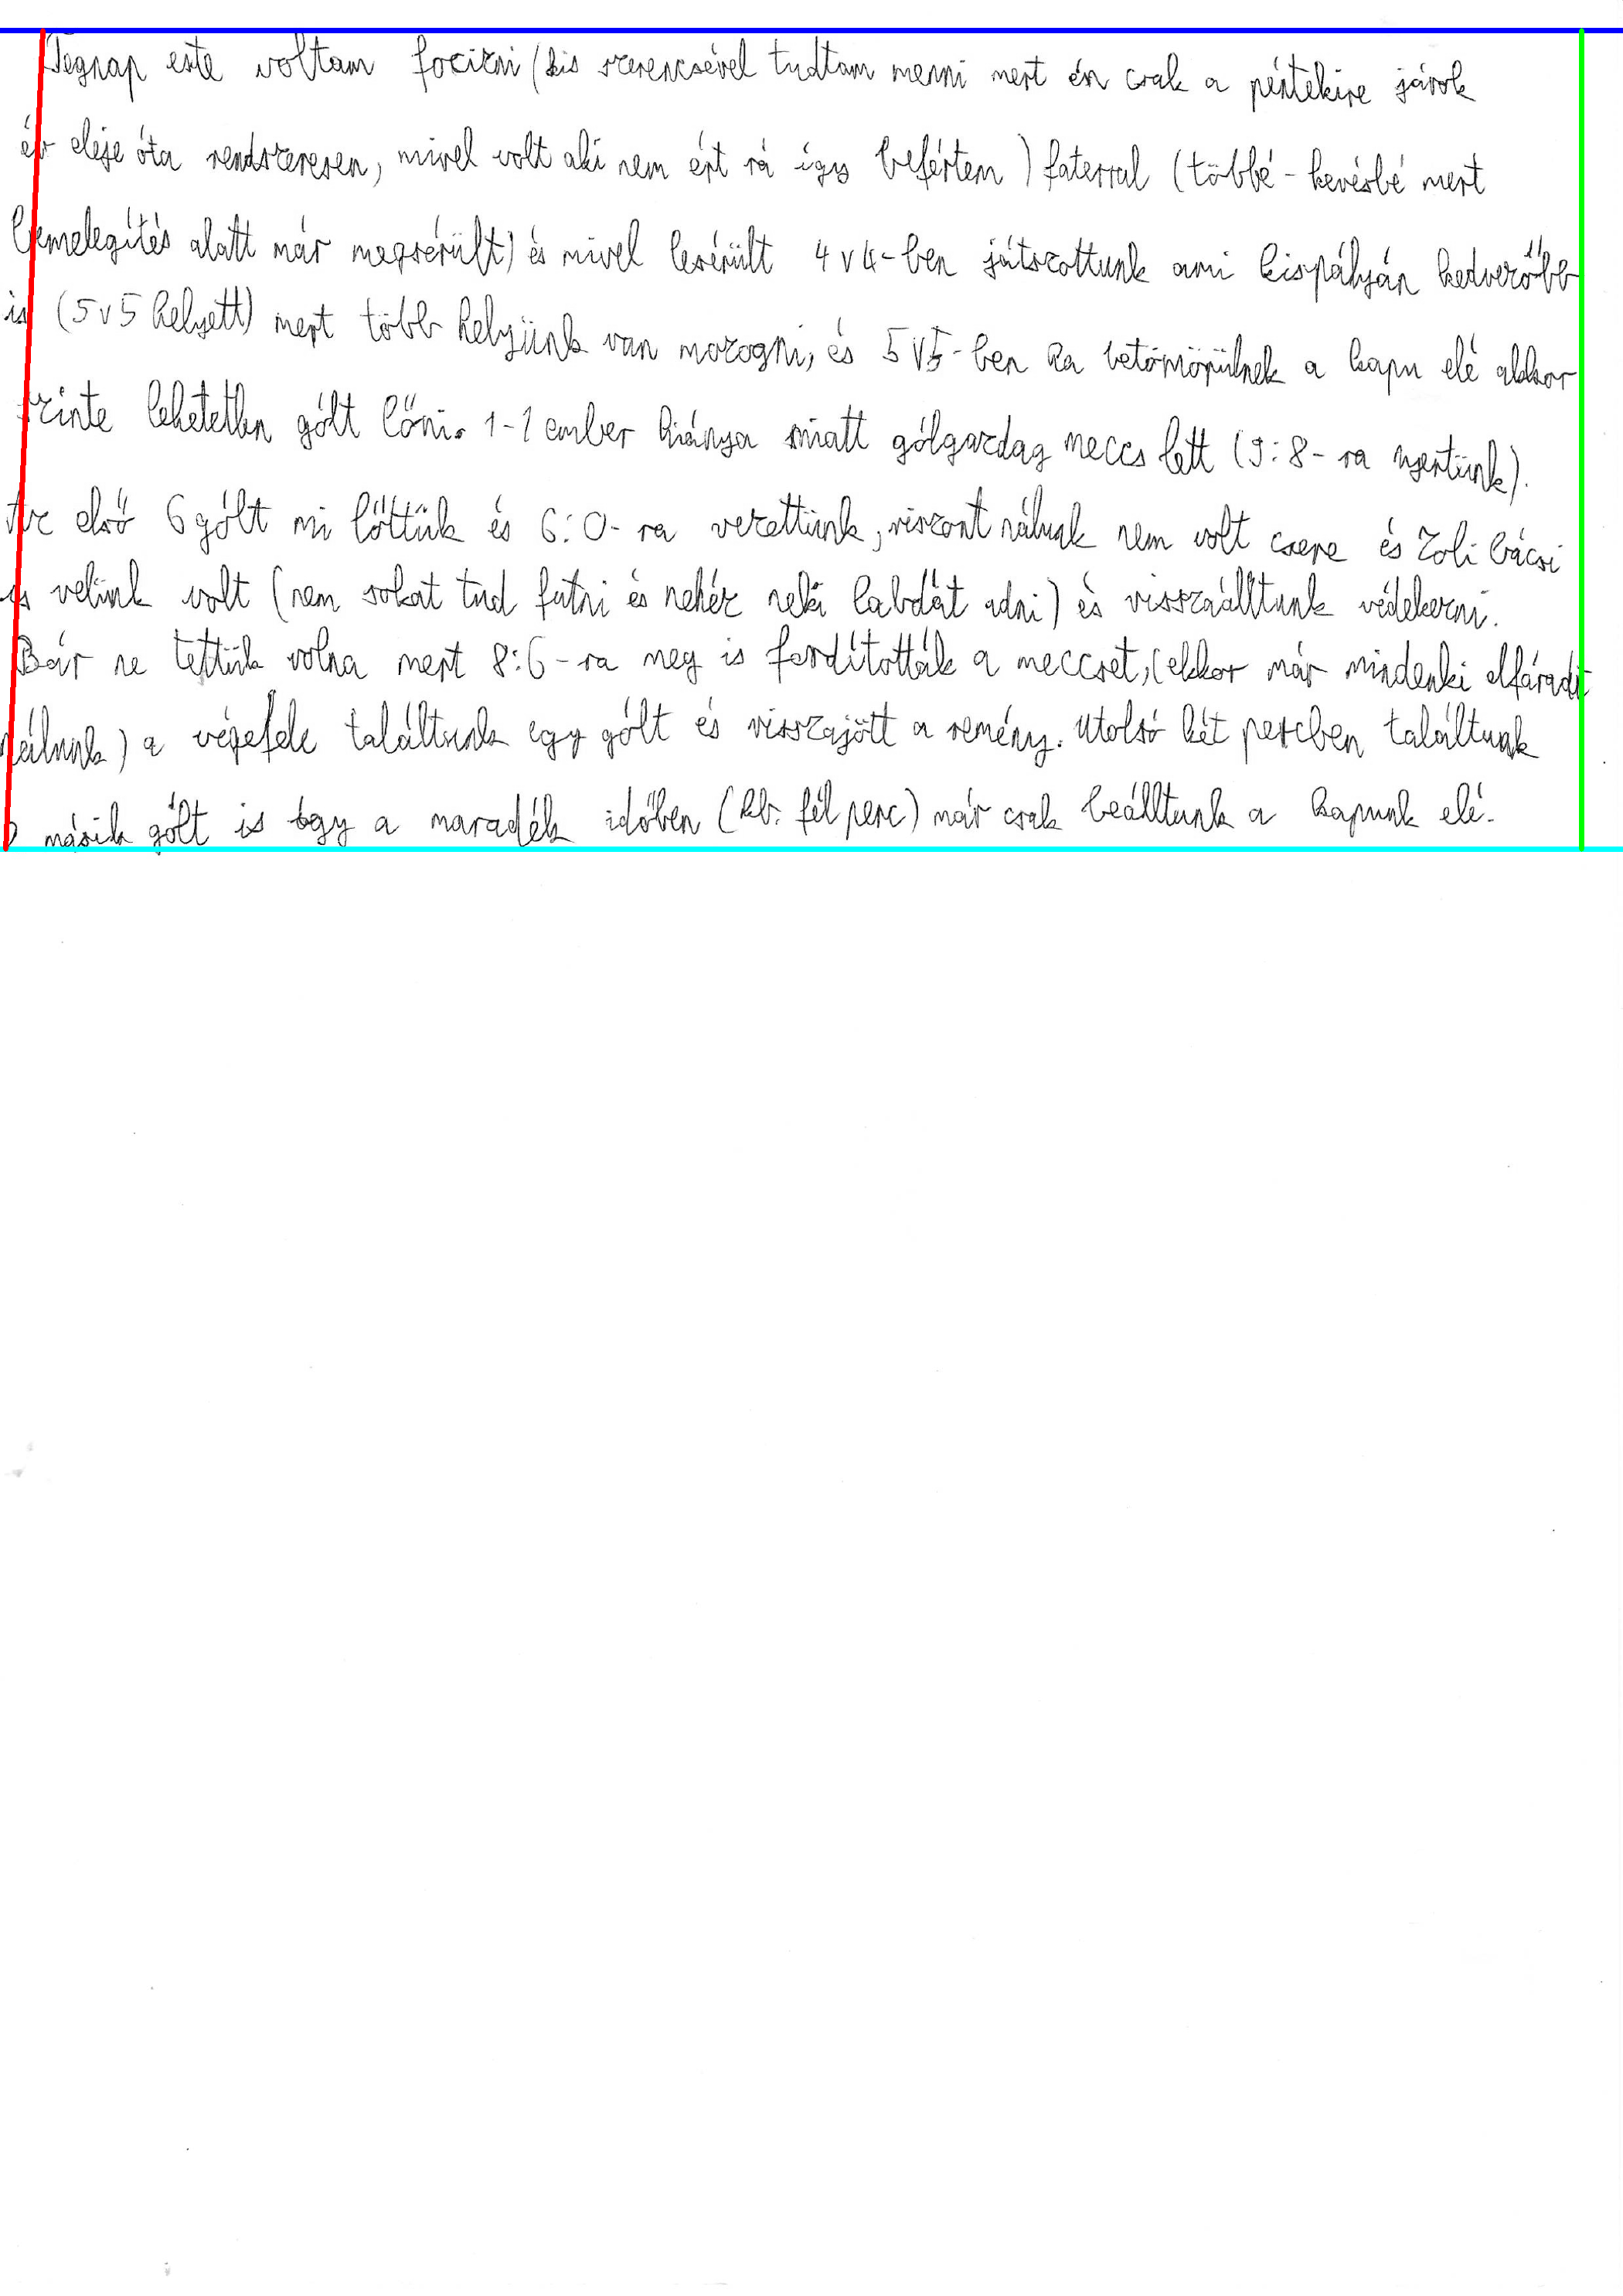 Tegnap este voltam focizni (kis szerencsével tudtam menni mert én csak a péntekire járok
év eleje óta rendszeresen, mivel volt aki nem ért rá így befértem) faterral (többé-kevésbé mert
bemelegítés alatt már megsérült) és mivel lesérült 4v4-ben játszottunk ami kispályán kedvezőbb
is (5v5 helyett) mert több helyünk van mozogni, és 5v5-ben ha betömörülnek a kapu elé akkor
szinte lehetetlen gólt lőni. 1-1 ember hiánya miatt gólgazdag meccs lett (9:8-ra nyertünk).
Az első 6 gólt mi lőttük és 6:0-ra vezettünk, viszont nálunk nem volt csere és Zoli bácsi
is velünk volt (nem sokat tud futni és nehéz neki labdát adni) és visszaálltunk védekezni.
Bár ne tettük volna mert 8:6-ra meg is fordították a meccset, (ekkor már mindenki elfáradt
nálunk) a végefele találtunk egy gólt és visszajött a remény. Utolsó két percben találtunk
másik gólt is így a maradék időben (kb. fél perc) már csak beálltunk a kapunk elé.